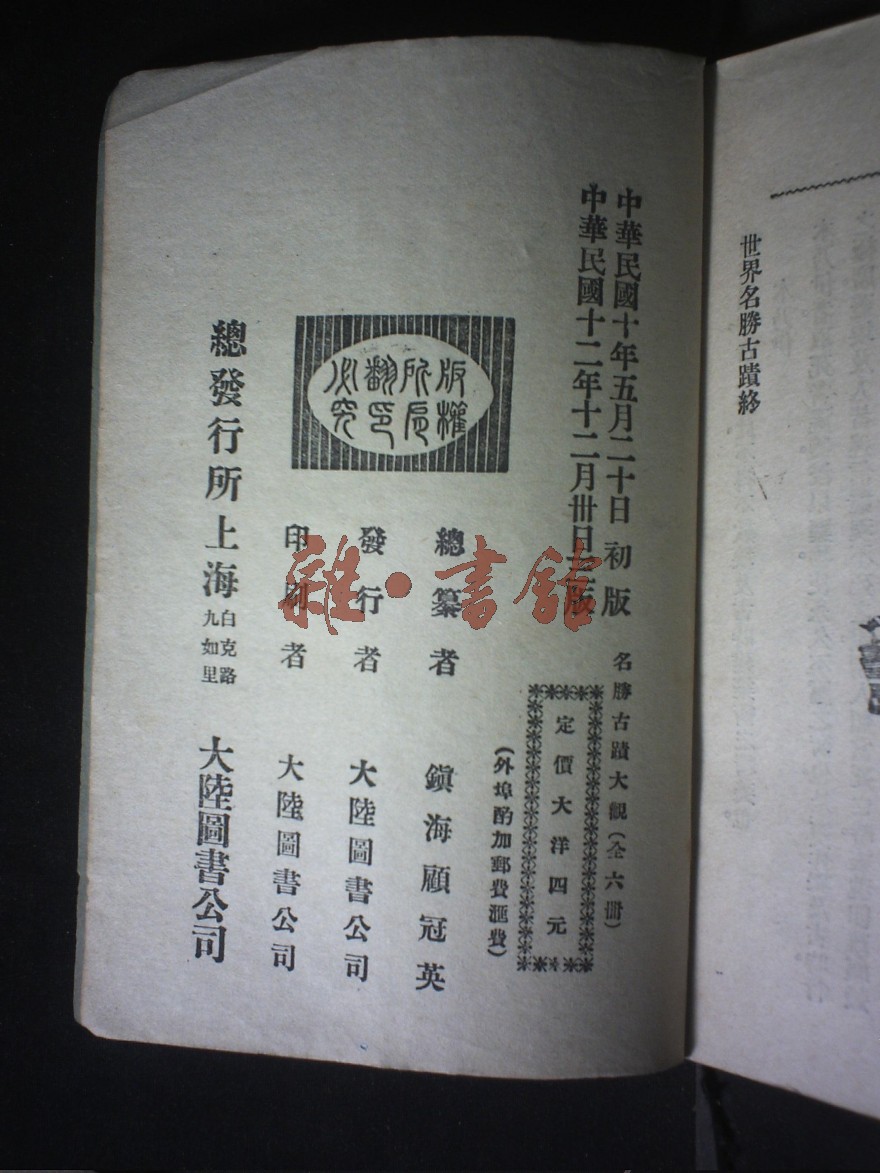 世界名勝古蹟終
中華民國十年五月二十日初版
中華民國十二年十二月卅日二版
名勝古蹟大觀(全六冊)
定價大洋四元
(外埠酌加郵費滙費)
版權
所有
翻印
必究
總纂者 鎭海顧冠英
發行者 大陸圖書公司
印刷者 大陸圖書公司
總發行所上海白克路九如里 大陸圖書公司
雜·書館